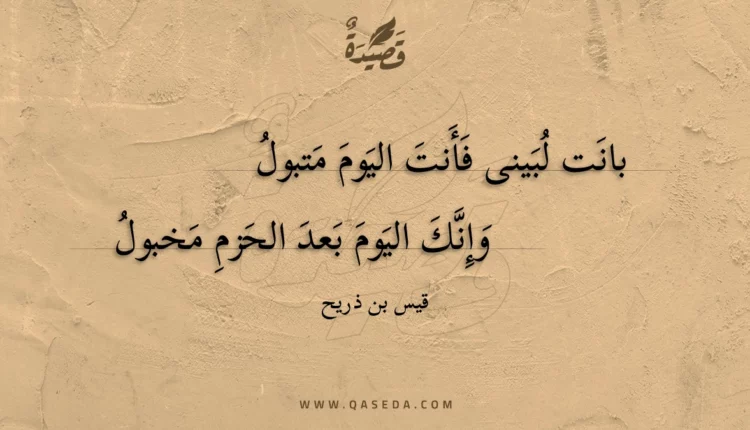 قَصِيدَةٌ
بانَت لُبَينى فَأَنتَ اليَومَ مَتبولُ
وَإِنَّكَ اليَومَ بَعدَ الحَزمِ مَخبولُ
قيس بن ذريح
WWW.QASEDA.COM